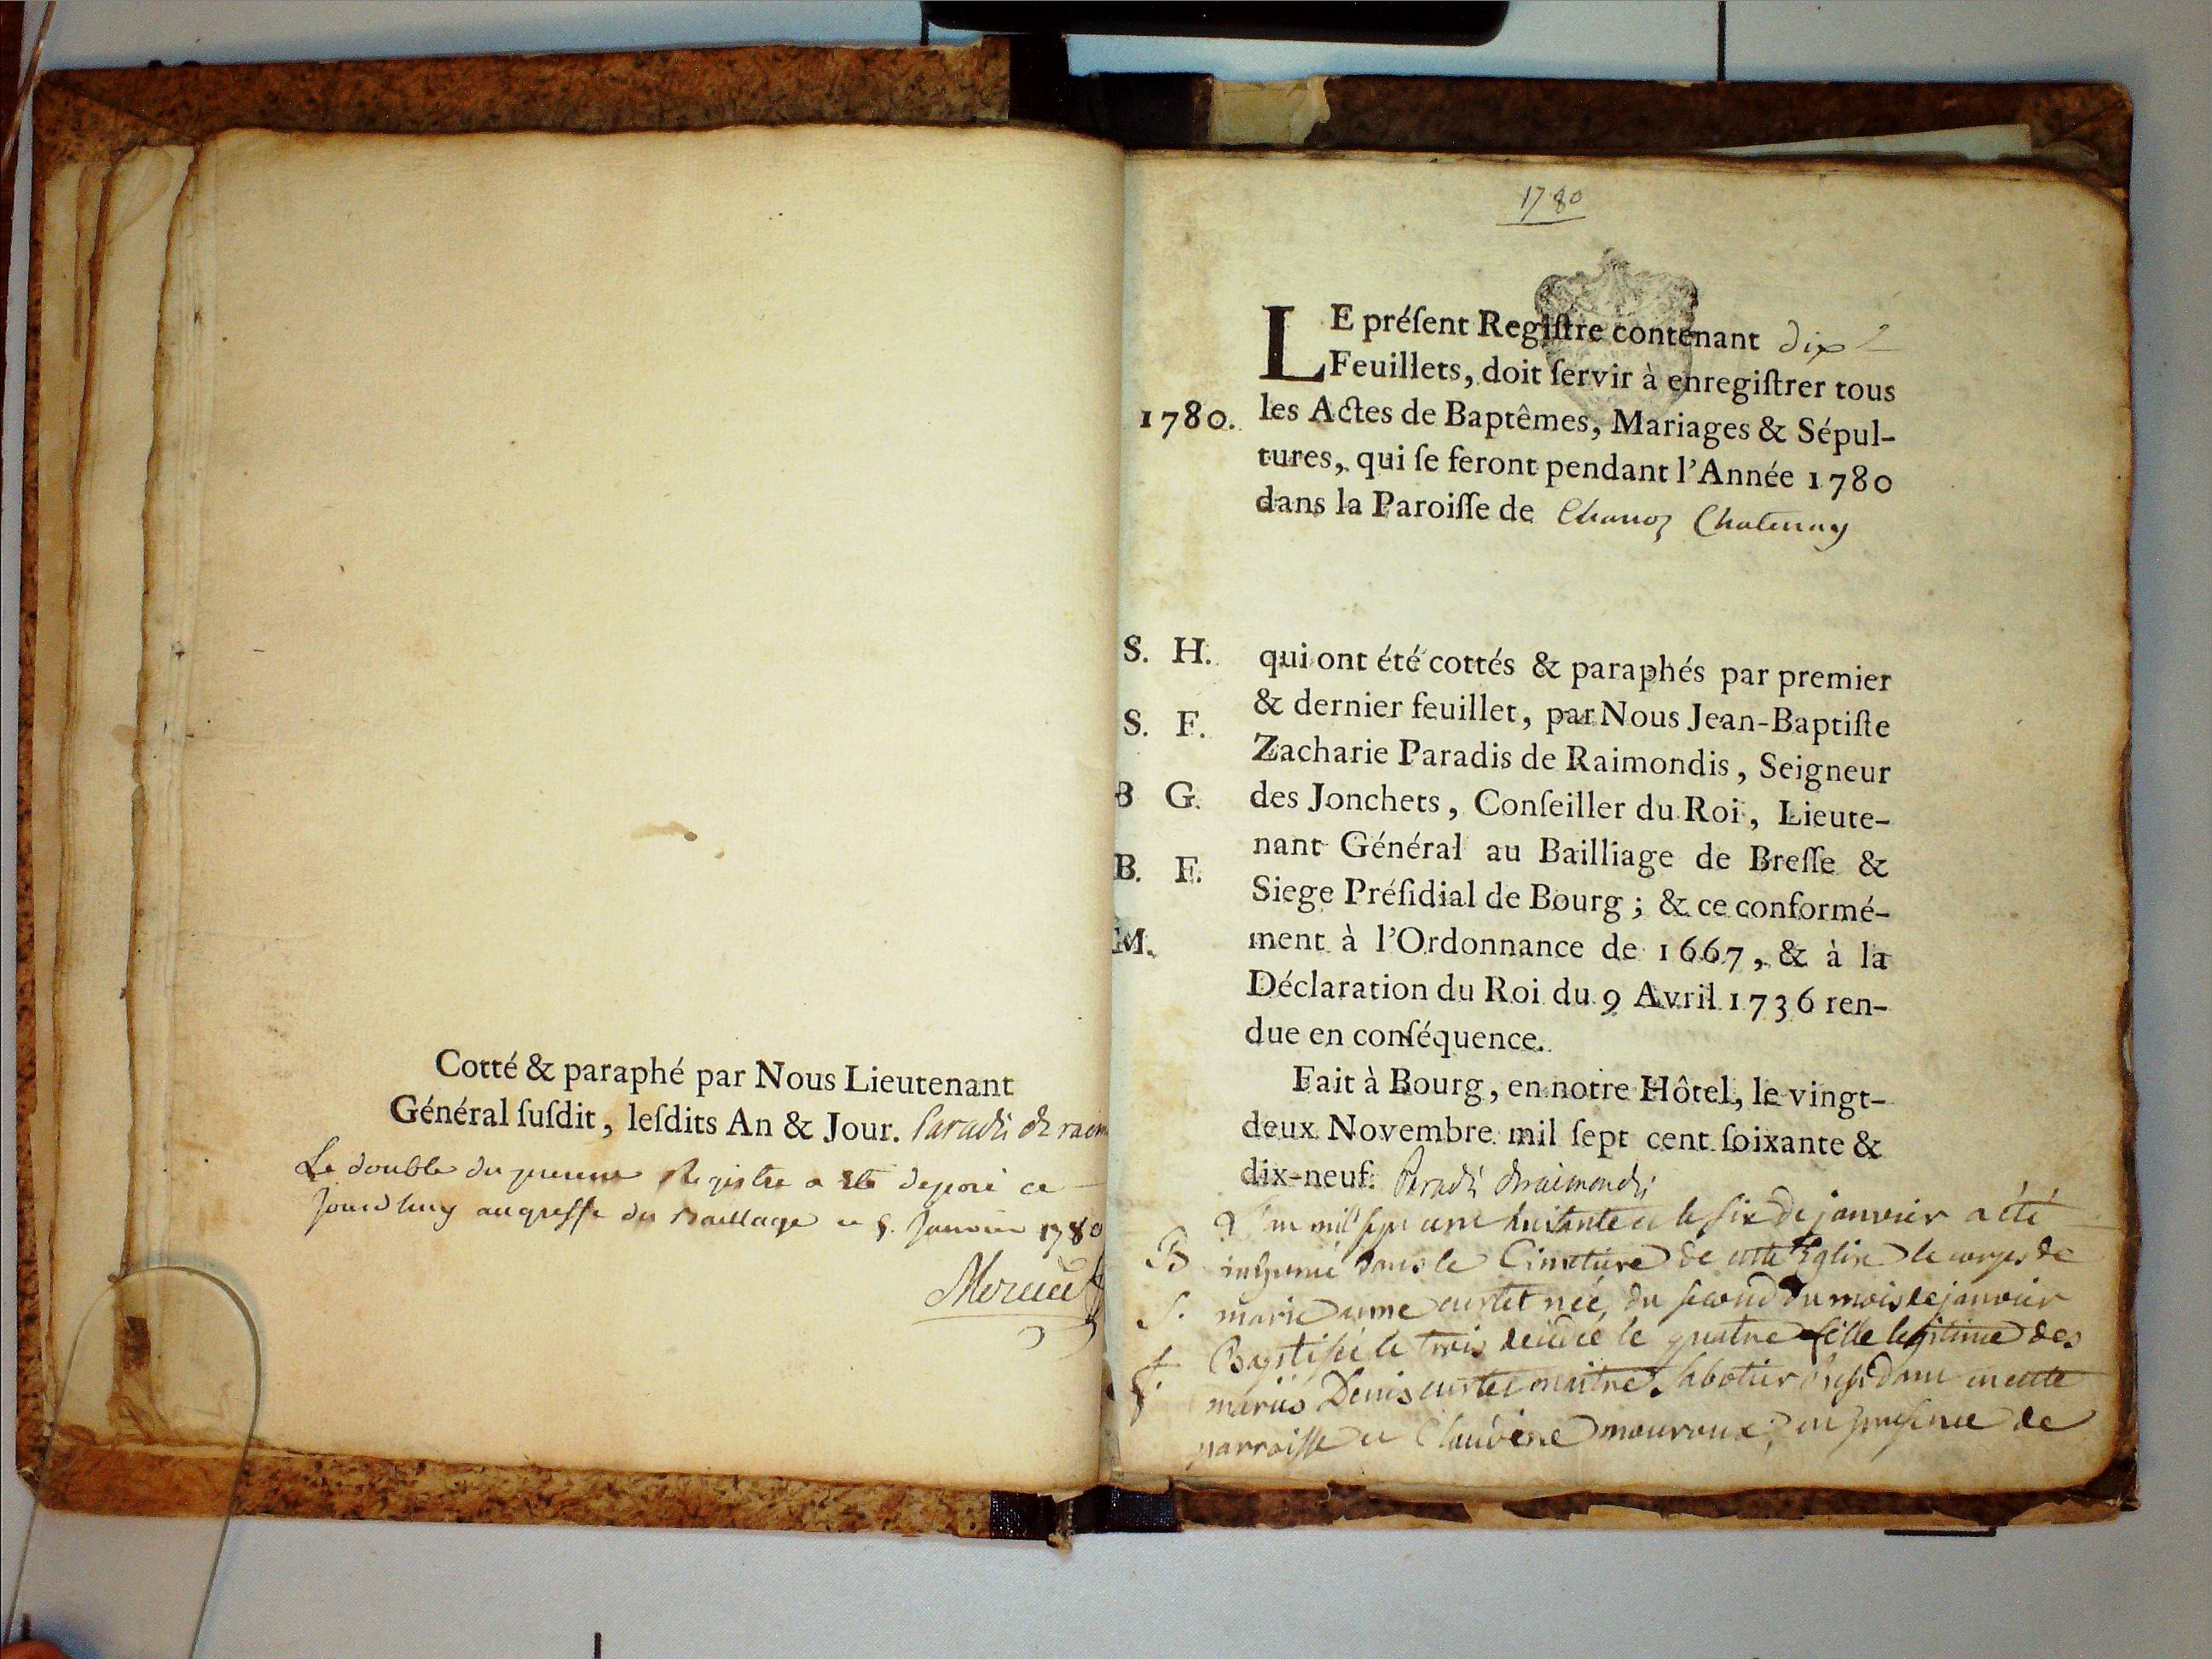 Cotté & paraphé par Nous Lieutenant
Général ſuſdit, leſdits An & Jour. Paradis de raim
Le double du Registre a été deposé ce
jourdhuy au greffe du Baillage ce 8. Janvier 1780
1780
LE préſent Regiſtre contenant dix
Feuillets, doit ſervir à enregiſtrer tous
1780. les Actes de Baptêmes, Mariages & Sépul-
tures, qui ſe feront pendant l'Année 1780
dans la Paroiſſe de Chanoz Chatenay
S. H. qui ont été cottés & paraphés par premier
S. F. & dernier feuillet, par Nous Jean-Baptiſte
Zacharie Paradis de Raimondis, Seigneur
B G. des Jonchets, Conſeiller du Roi, Lieute-
nant Général au Bailliage de Breſſe &
B. F. Siege Préſidial de Bourg ; & ce conformé-
M. ment à l'Ordonnance de 1667, & à la
Déclaration du Roi du 9 Avril 1736 ren-
due en conſéquence.
Fait à Bourg, en notre Hôtel, le vingt-
deux Novembre mil ſept cent ſoixante &
dix-neuf. Paradis de raimondis
L'an mil sept cent huitante et le six de janvier a été
B inhumé dans le Cimetiere de cette Eglise le corps de
S. marie anne curtet née du second du mois de janvier
f Baptisée le trois décédée le quatre fille legitime des
mariés Denis curtet maitre Sabotier residant en cette
parroisse et Claudine mouroux, en presence de